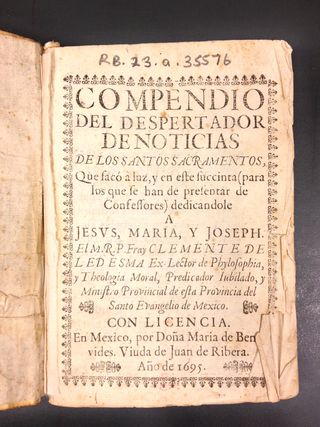 RB.23.a.35576
COMPENDIO
DEL DESPERTADOR
DE NOTICIAS
DE LOS SANTOS SACRAMENTOS,
Que sacó à luz, y en este succinta (para
los que se han de presentar de
Confessores) dedicandole
A
JESVS, MARIA, Y JOSEPH.
El M.R.P. Fray CLEMENTE DE
LEDESMA Ex-Lector de Phylosophia,
y Theologia Moral, Predicador Iubilado, y
Ministro Provincial de esta Provincia del
Santo Evangelio de Mexico.
CON LICENCIA.
En Mexico, por Doña Maria de Ben
vides. Viuda de Juan de Ribera.
Año de 1695.